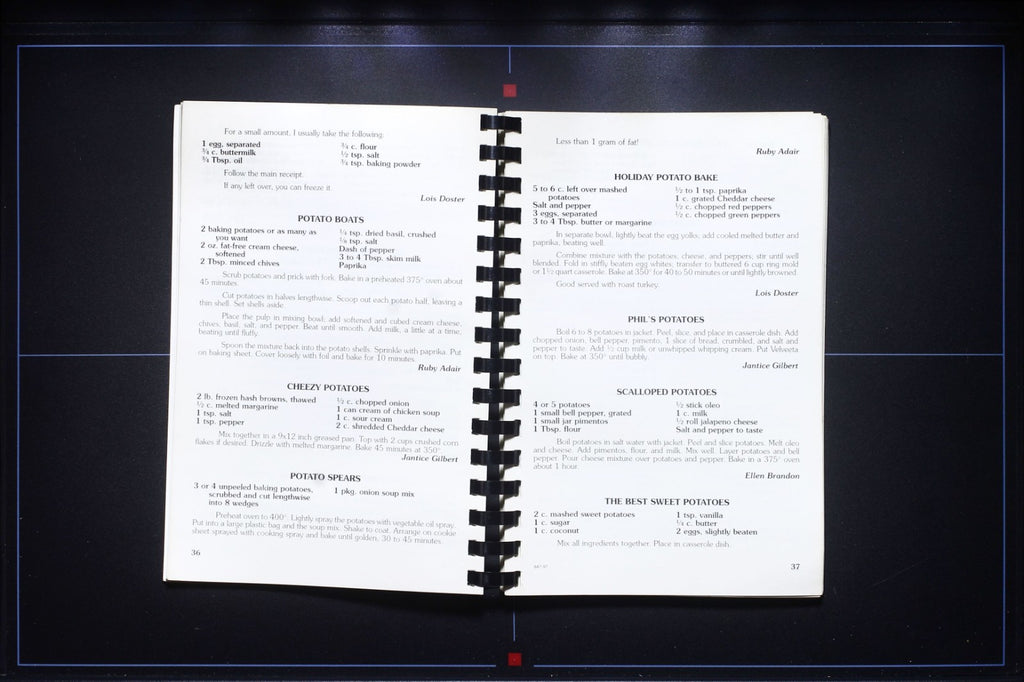 For a small amount, I usually take the following:
1 egg, separated
¾ c. buttermilk
¾ Tbsp. oil
¾ c. flour
½ tsp. salt
¾ tsp. baking powder
Follow the main receipt.
If any left over, you can freeze it.
Lois Doster
POTATO BOATS
2 baking potatoes or as many as
you want
2 oz. fat-free cream cheese,
softened
2 Tbsp. minced chives
¼ tsp. dried basil, crushed
⅛ tsp. salt
Dash of pepper
3 to 4 Tbsp. skim milk
Paprika
Scrub potatoes and prick with fork. Bake in a preheated 375° oven about
45 minutes.
Cut potatoes in halves lengthwise. Scoop out each potato half, leaving a
thin shell. Set shells aside.
Place the pulp in mixing bowl; add softened and cubed cream cheese,
chives, basil, salt, and pepper. Beat until smooth. Add milk, a little at a time,
beating until fluffy.
Spoon the mixture back into the potato shells. Sprinkle with paprika. Put
on baking sheet. Cover loosely with foil and bake for 10 minutes.
Ruby Adair
CHEEZY POTATOES
2 lb. frozen hash browns, thawed
½ c. melted margarine
1 tsp. salt
1 tsp. pepper
½ c. chopped onion
1 can cream of chicken soup
1 c. sour cream
2 c. shredded Cheddar cheese
Mix together in a 9x12 inch greased pan. Top with 2 cups crushed corn
flakes if desired. Drizzle with melted margarine. Bake 45 minutes at 350°.
Jantice Gilbert
POTATO SPEARS
3 or 4 unpeeled baking potatoes,
scrubbed and cut lengthwise
into 8 wedges
1 pkg. onion soup mix
Preheat oven to 400°. Lightly spray the potatoes with vegetable oil spray.
Put into a large plastic bag and the soup mix. Shake to coat. Arrange on cookie
sheet sprayed with cooking spray and bake until golden, 30 to 45 minutes.
36
Less than 1 gram of fat!
Ruby Adair
HOLIDAY POTATO BAKE
5 to 6 c. left over mashed
potatoes
Salt and pepper
3 eggs, separated
3 to 4 Tbsp. butter or margarine
½ to 1 tsp. paprika
1 c. grated Cheddar cheese
½ c. chopped red peppers
½ c. chopped green peppers
In separate bowl, lightly beat the egg yolks; add cooled melted butter and
paprika, beating well.
Combine mixture with the potatoes, cheese, and peppers; stir until well
blended. Fold in stiffly beaten egg whites; transfer to buttered 6 cup ring mold
or 1½ quart casserole. Bake at 350° for 40 to 50 minutes or until lightly browned.
Good served with roast turkey.
Lois Doster
PHIL'S POTATOES
Boil 6 to 8 potatoes in jacket. Peel, slice, and place in casserole dish. Add
chopped onion, bell pepper, pimento, 1 slice of bread, crumbled, and salt and
pepper to taste. Add ½ cup milk or unwhipped whipping cream. Put Velveeta
on top. Bake at 350° until bubbly.
Jantice Gilbert
SCALLOPED POTATOES
4 or 5 potatoes
1 small bell pepper, grated
1 small jar pimentos
1 Tbsp. flour
½ stick oleo
1 c. milk
½ roll jalapeno cheese
Salt and pepper to taste
Boil potatoes in salt water with jacket. Peel and slice potatoes. Melt oleo
and cheese. Add pimentos, flour, and milk. Mix well. Layer potatoes and bell
pepper. Pour cheese mixture over potatoes and pepper. Bake in a 375° oven
about 1 hour.
Ellen Brandon
THE BEST SWEET POTATOES
2 c. mashed sweet potatoes
1 c. sugar
1 c. coconut
1 tsp. vanilla
¼ c. butter
2 eggs, slightly beaten
Mix all ingredients together. Place in casserole dish.
37